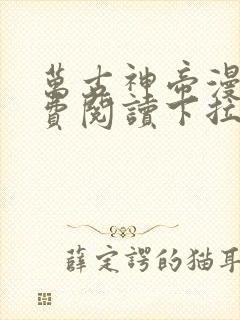 萬古神帝漫
費閱讀下拉
薛定諤的猫耳